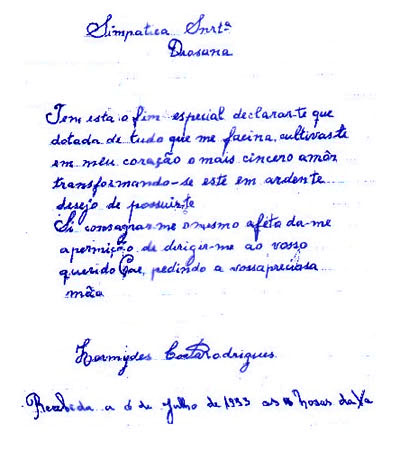 Simpatica Snrtª
Diosina
Tem esta o fim especial declarar-te que
dotada de tudo que me facina, cultivaste
em meu coração o mais cincero amôr
transformando-se este em ardente
desejo de possuir-te
Si consagrar-me o mesmo afeto da-me
a permição de dirigir-me ao vosso
querido Pae, pedindo a vossa preciosa
mão
Hermydes Costa Rodrigues
Recebida a 6 de Julho de 1933 as horas da